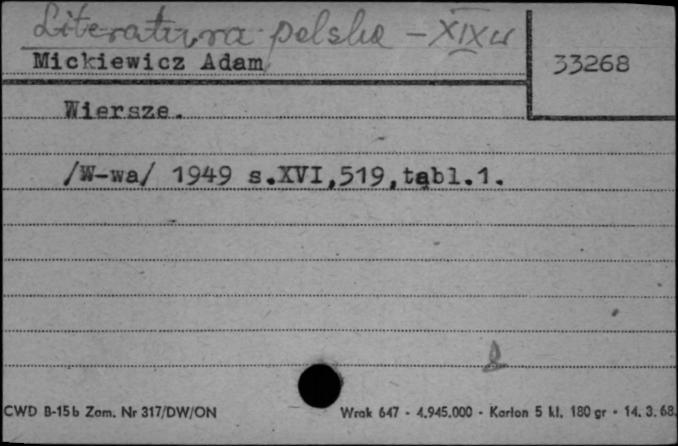 Literatura polska - XIX w
Mickiewicz Adam
33268
Wiersze.
/W-wa/ 1949 s.XVI,519,tabl.1.
CWD B-15b Zam. Nr 317/DW/ON
Wrak 647 - 4.945.000 - Karton 5 kl. 180 gr - 14. 3. 68.